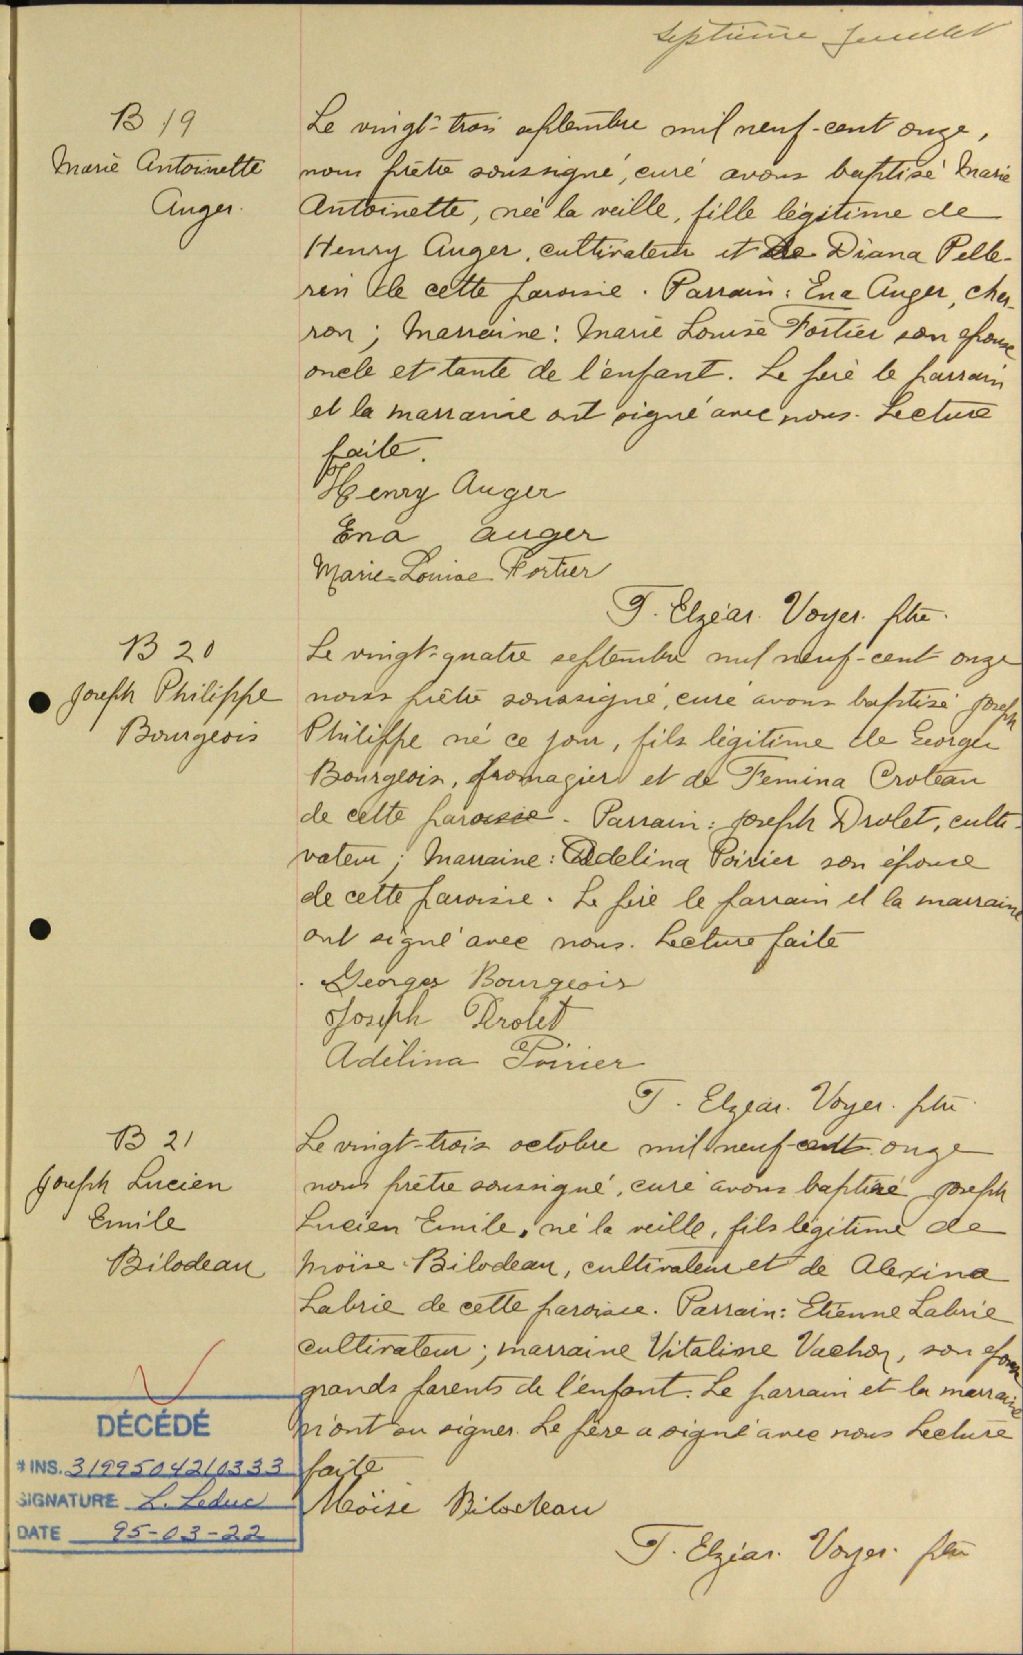 septième feuillet
B 19
Marie Antoinette
Auger.
Le vingt-trois septembre mil neuf-cent onze,
nous prêtre soussigné, curé avons baptisé Marie
Antoinette, née la veille, fille légitime de
Henry Auger, cultivateur et de Diana Pelle-
rin de cette paroisse. Parrain: Ena Auger, char-
ron; Marraine: Marie Louise Fortier son épouse
oncle et tante de l'enfant. Le père le parrain
et la marraine ont signé avec nous. Lecture
faite.
Henry Auger
Ena Auger
Marie-Louise Fortier
T. Elzéar. Voyer. ptre.
B 20
Joseph Philippe
Bourgeois
Le vingt-quatre septembre mil neuf-cent onze
nous prêtre soussigné, curé avons baptisé Joseph
Philippe né ce jour, fils légitime de Georges
Bourgeois, fromagier et de Femina Croteau
de cette paroisse. Parrain: Joseph Drolet, culti-
vateur; Marraine: Adelina Poirier son épouse
de cette paroisse. Le père le parrain et la marraine
ont signé avec nous. Lecture faite
Georges Bourgeois
Joseph Drolet
Adélina Poirier
T. Elzéar. Voyer. ptre.
B 21
Joseph Lucien
Emile
Bilodeau
Le vingt-trois octobre mil neuf-cent onze
nous prêtre soussigné, curé avons baptisé Joseph
Lucien Emile, né la veille, fils légitime de
Moïse Bilodeau, cultivateur et de Alexina
Labrie de cette paroisse. Parrain: Etienne Labrie
cultivateur; marraine Vitaline Vachon, son épouse
grands parents de l'enfant. Le parrain et la marraine
n'ont su signer. Le père a signé avec nous Lecture
faite
Moïse Bilodeau
T. Elzéar. Voyer. ptre
DÉCÉDÉ
# INS. 3199504210333
SIGNATURE L. Leduc
DATE 95-03-22